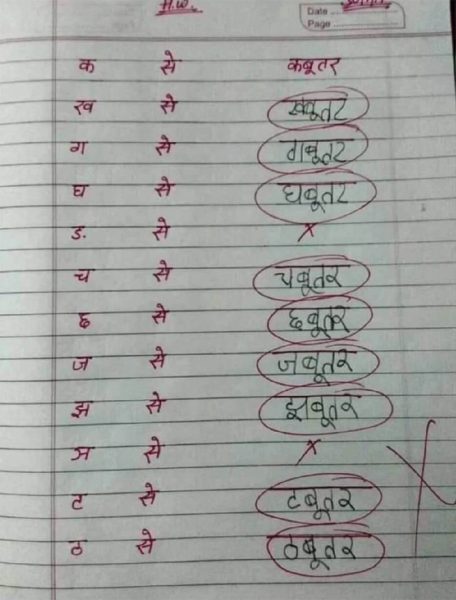 H.W.
Date
Page
क से कबूतर
ख से खबूतर
ग से गबूतर
घ से घबूतर
ङ. से x
च से चबूतर
छ से छबूतर
ज से जबूतर
झ से झबूतर
ञ से x
ट से टबूतर
ठ से ठबूतर